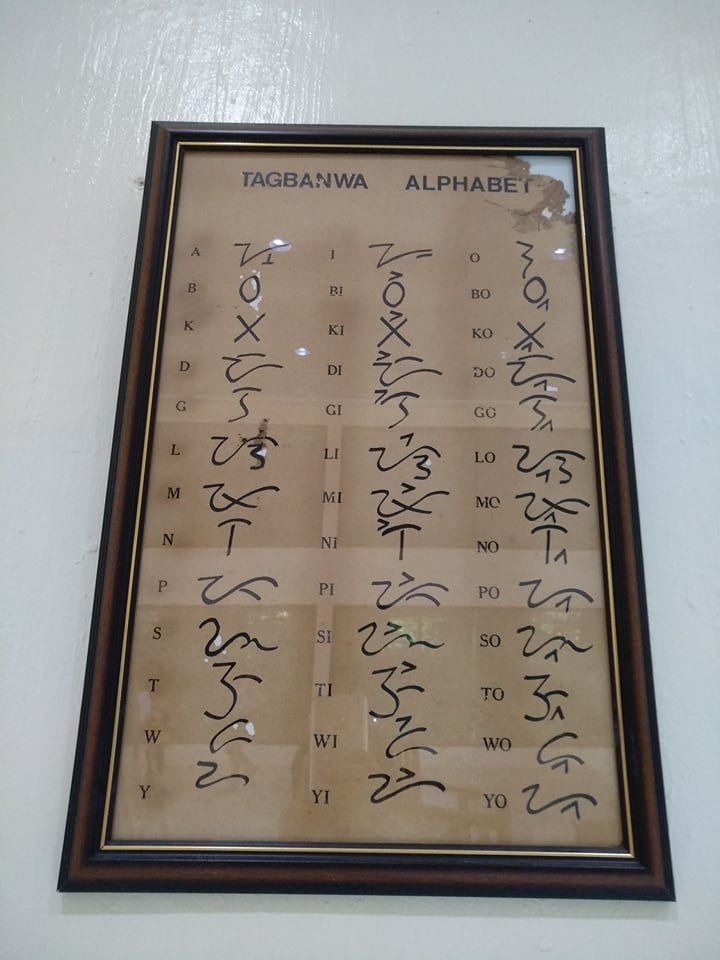 TAGBANWA ALPHABET
A ᝠ I ᝡ O ᝢ
B ᝪ BI ᝪᝲ BO ᝪᝳ
K ᝣ KI ᝣᝲ KO ᝣᝳ
D ᝧ DI ᝧᝲ DO ᝧᝳ
G ᝤ GI ᝤᝲ GO ᝤᝳ
L ᝮ LI ᝮᝲ LO ᝮᝳ
M ᝫ MI ᝫᝲ MO ᝫᝳ
N ᝨ NI ᝨᝲ NO ᝨᝳ
P ᝩ PI ᝩᝲ PO ᝩᝳ
S ᝰ SI ᝰᝲ SO ᝰᝳ
T ᝦ TI ᝦᝲ TO ᝦᝳ
W ᝯ WI ᝯᝲ WO ᝯᝳ
Y ᝬ YI ᝬᝲ YO ᝬᝳ